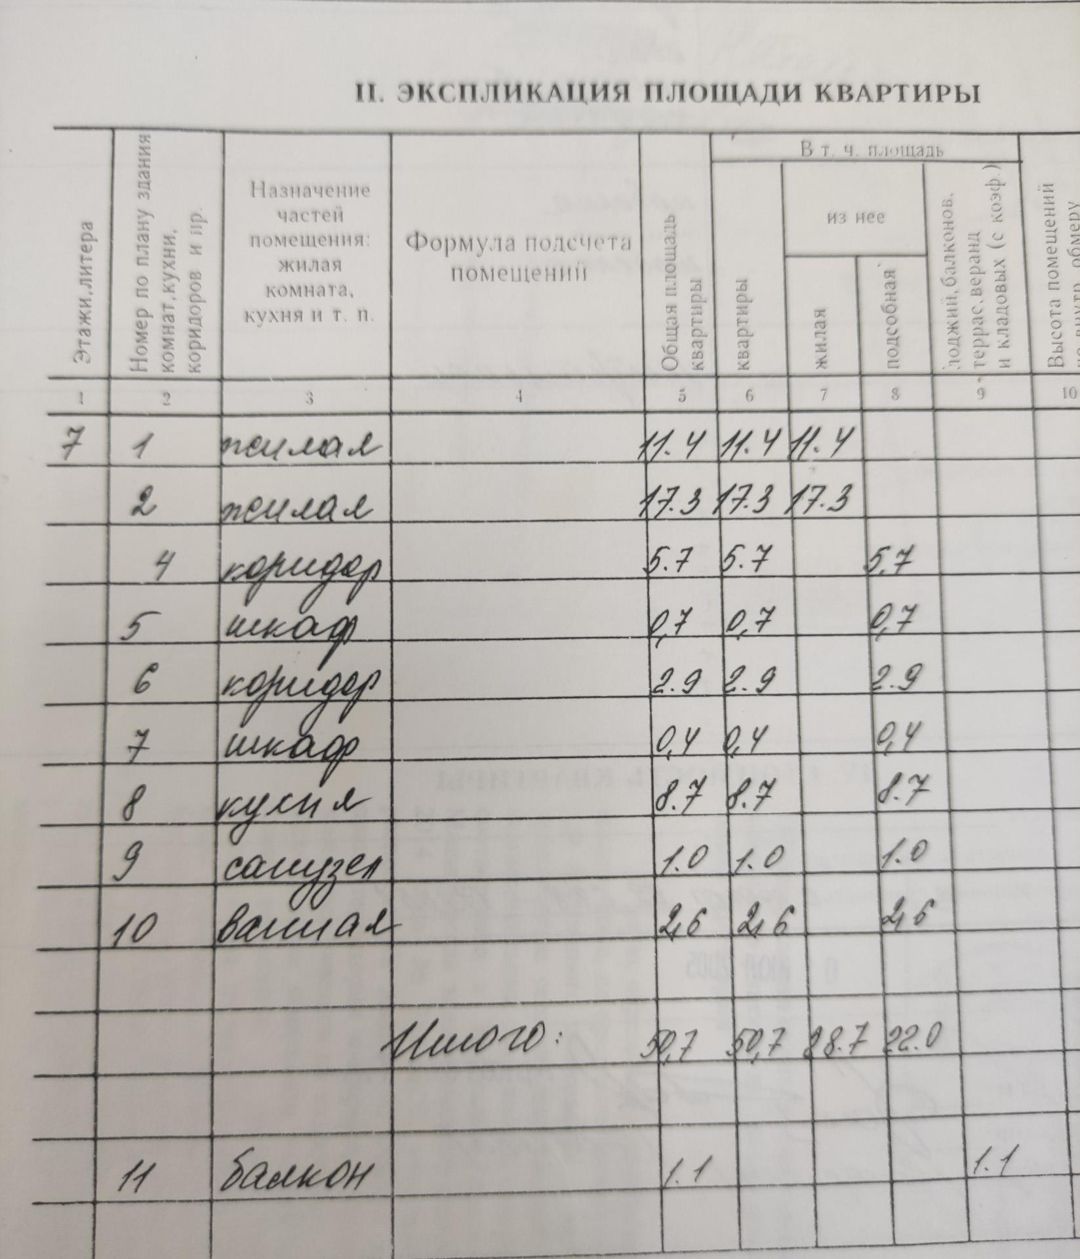 II. ЭКСПЛИКАЦИЯ ПЛОЩАДИ КВАРТИРЫ
Этажи, литера
Номер по плану здания
комнат, кухни,
коридоров и пр.
Назначение
частей
помещения:
жилая
комната,
кухня и т. п.
Формула подсчета
помещений
Общая площадь
квартиры
В т. ч. площадь
квартиры
из нее
жилая
подсобная
лоджий, балконов,
террас, веранд
и кладовых (с коэф.)
Высота помещений
по внутр. обмеру
1 2 3 4 5 6 7 8 9 10
7 1 жилая 11.4 11.4 11.4
2 жилая 17.3 17.3 17.3
4 коридор 5.7 5.7 5,7
5 шкаф 0,7 0,7 0,7
6 коридор 2.9 2.9 2.9
7 шкаф 0,4 0,4 0,4
8 кухня 8.7 8.7 8.7
9 санузел 1.0 1.0 1.0
10 ванная 2,6 2,6 2,6
Итого: 50,7 50,7 28.7 22.0
11 балкон 1.1 1.1